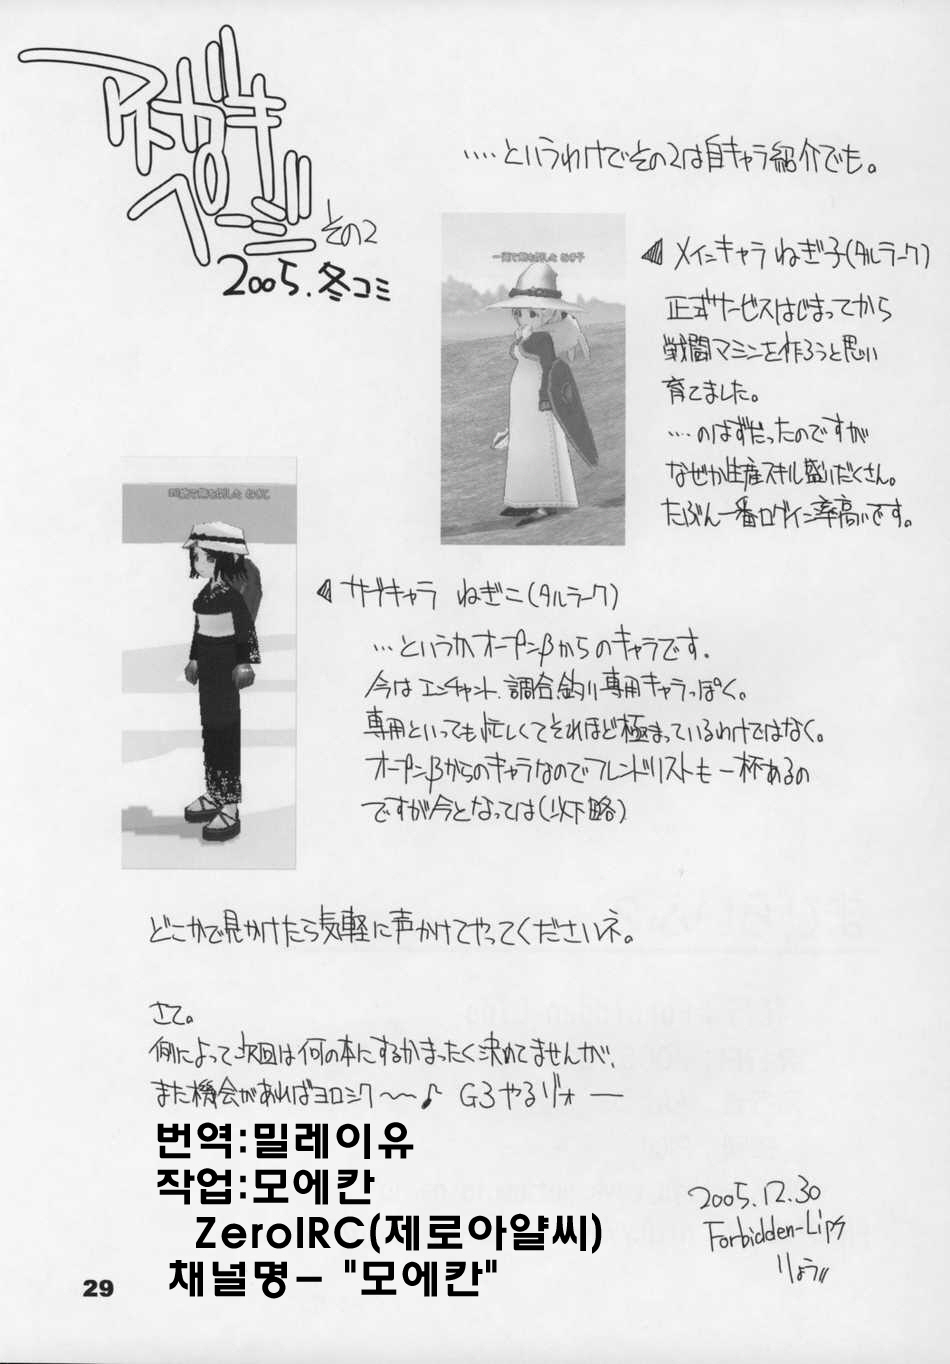 アトガキ
ページ
その2
2005.冬コミ
‥‥というわけでその2は自キャラ紹介でも。
メインキャラ ねぎ子(タルラーク)
正式サービスはじまってから
戦闘マシンを作ろうと思い
育てました。
‥‥のはずだったのですが
なぜか生産スキル盛りだくさん。
たぶん一番ログイン率高いです。
サブキャラ ねぎこ(タルラーク)
…というかオープンβからのキャラです.
今はエンチャント、調合、釣り専用キャラっぽく。
専用といっても忙しくてそれほど極まっているわけではなく。
オープンβからのキャラなのでフレンドリストも一杯あるの
ですが今となっては(以下略)
どこかで見かけたら気軽に声かけてやってくださいネ。
さて。
例によって次回は何の本にするかまったく決めてませんが、
また機会があればヨロシク〜〜♪ G3やるゾォー
번역:밀레이유
작업:모에칸
ZeroIRC(제로아얄씨)
채널명- "모에칸"
2005.12.30
Forbidden-Lips
りょう
29